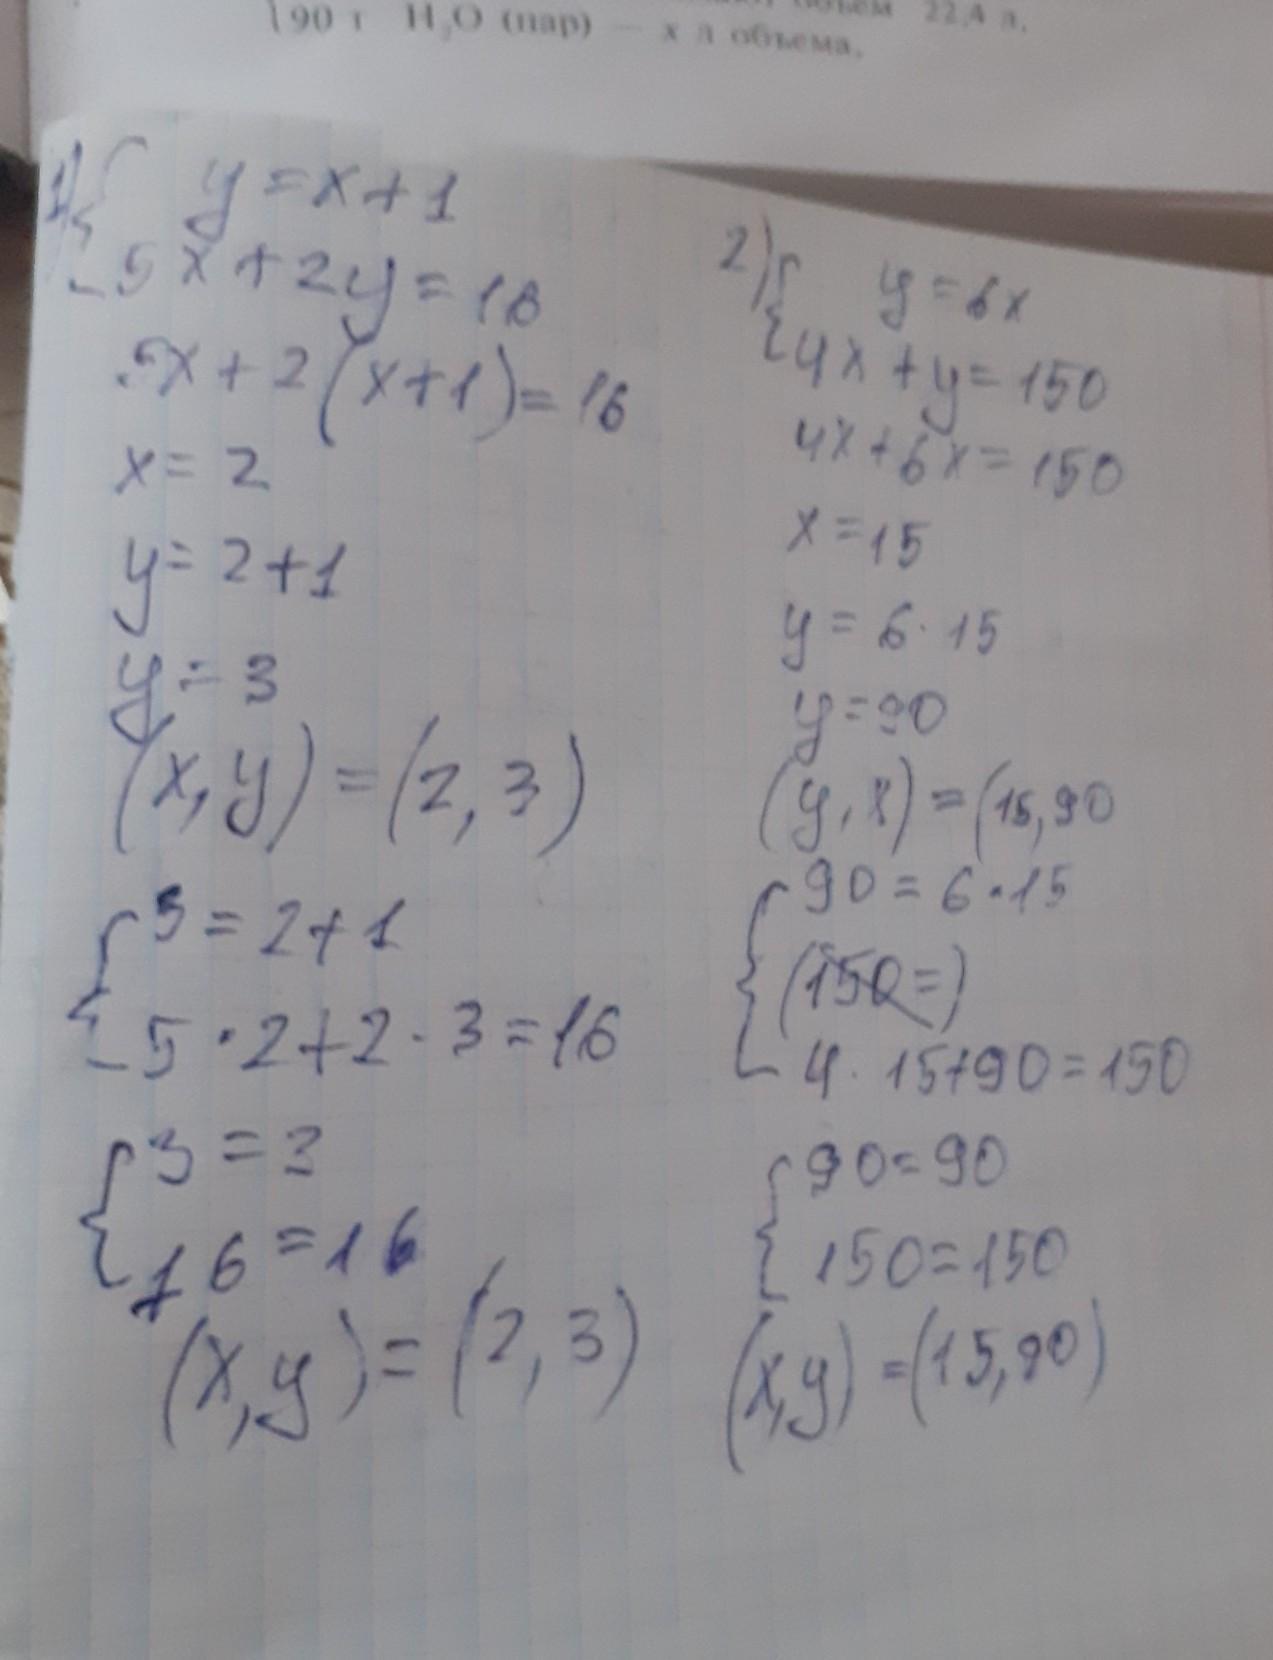 объем 22,4 л.
90 г H₂O (пар) — x л объема.
1) { y = x + 1
5x + 2y = 16
5x + 2(x+1) = 16
x = 2
y = 2 + 1
y = 3
(x, y) = (2, 3)
{ 3 = 2 + 1
5 · 2 + 2 · 3 = 16
{ 3 = 3
16 = 16
(x, y) = (2, 3)
2) { y = 6x
4x + y = 150
4x + 6x = 150
x = 15
y = 6 · 15
y = 90
(y, x) = (15, 90
{ 90 = 6 · 15
(150 =)
4 · 15 + 90 = 150
{ 90 = 90
150 = 150
(x, y) = (15, 90)